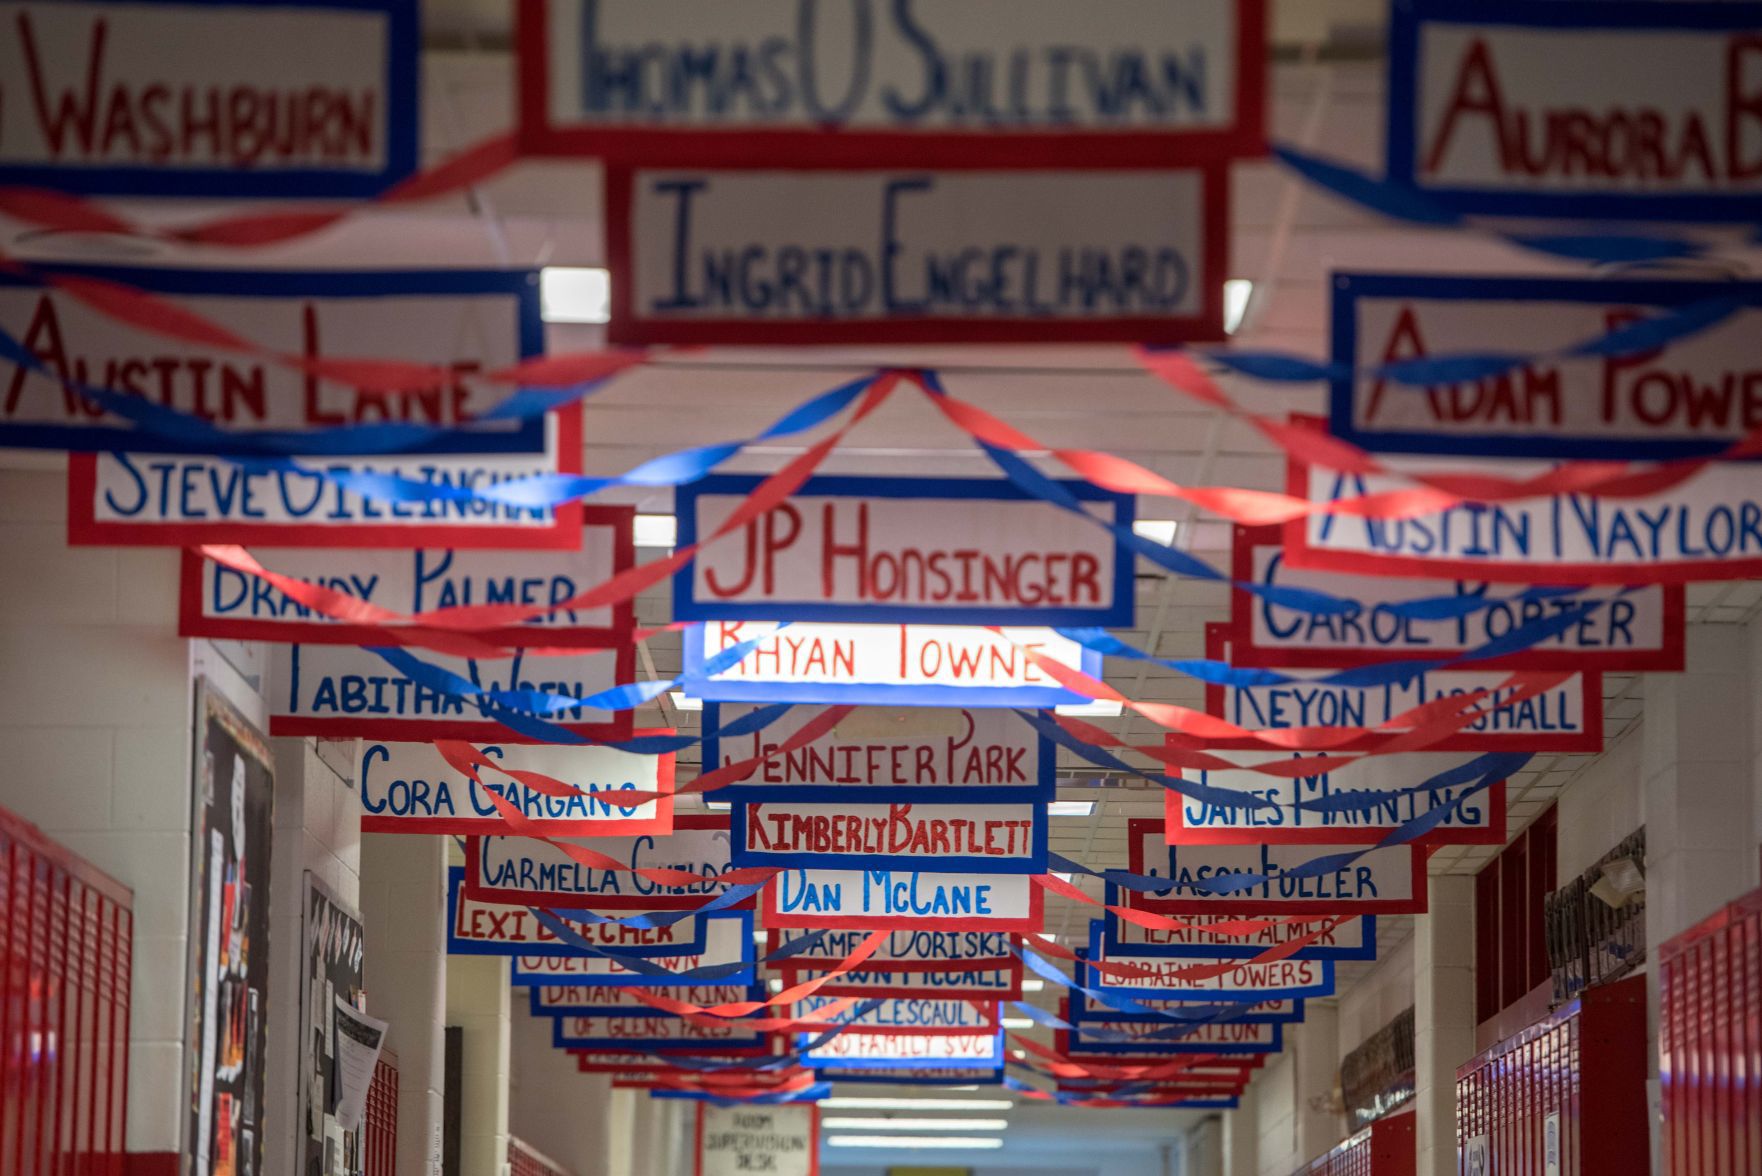 Washburn
Thomas O Sullivan
Aurora B
Ingrid Engelhard
Austin Lane
Adam Powe
Steve Gillingham
JP Honsinger
Austin Naylor
Brandy Palmer
Carol Porter
Rhyan Towne
Tabitha Wren
Keyon Marshall
Jennifer Park
Cora Gargano
James Manning
Kimberly Bartlett
Carmella Childs
Jason Fuller
Dan McCane
Lexi Beecher
Heather Palmer
James Doriski
Lorraine Powers
McCall
Watkins
Lescault
of Glens Falls
Association
and Family Svc.